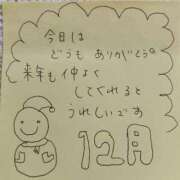 今日は
どうもありがとう。
来年も仲よく
してくれると
うれしいです
12月